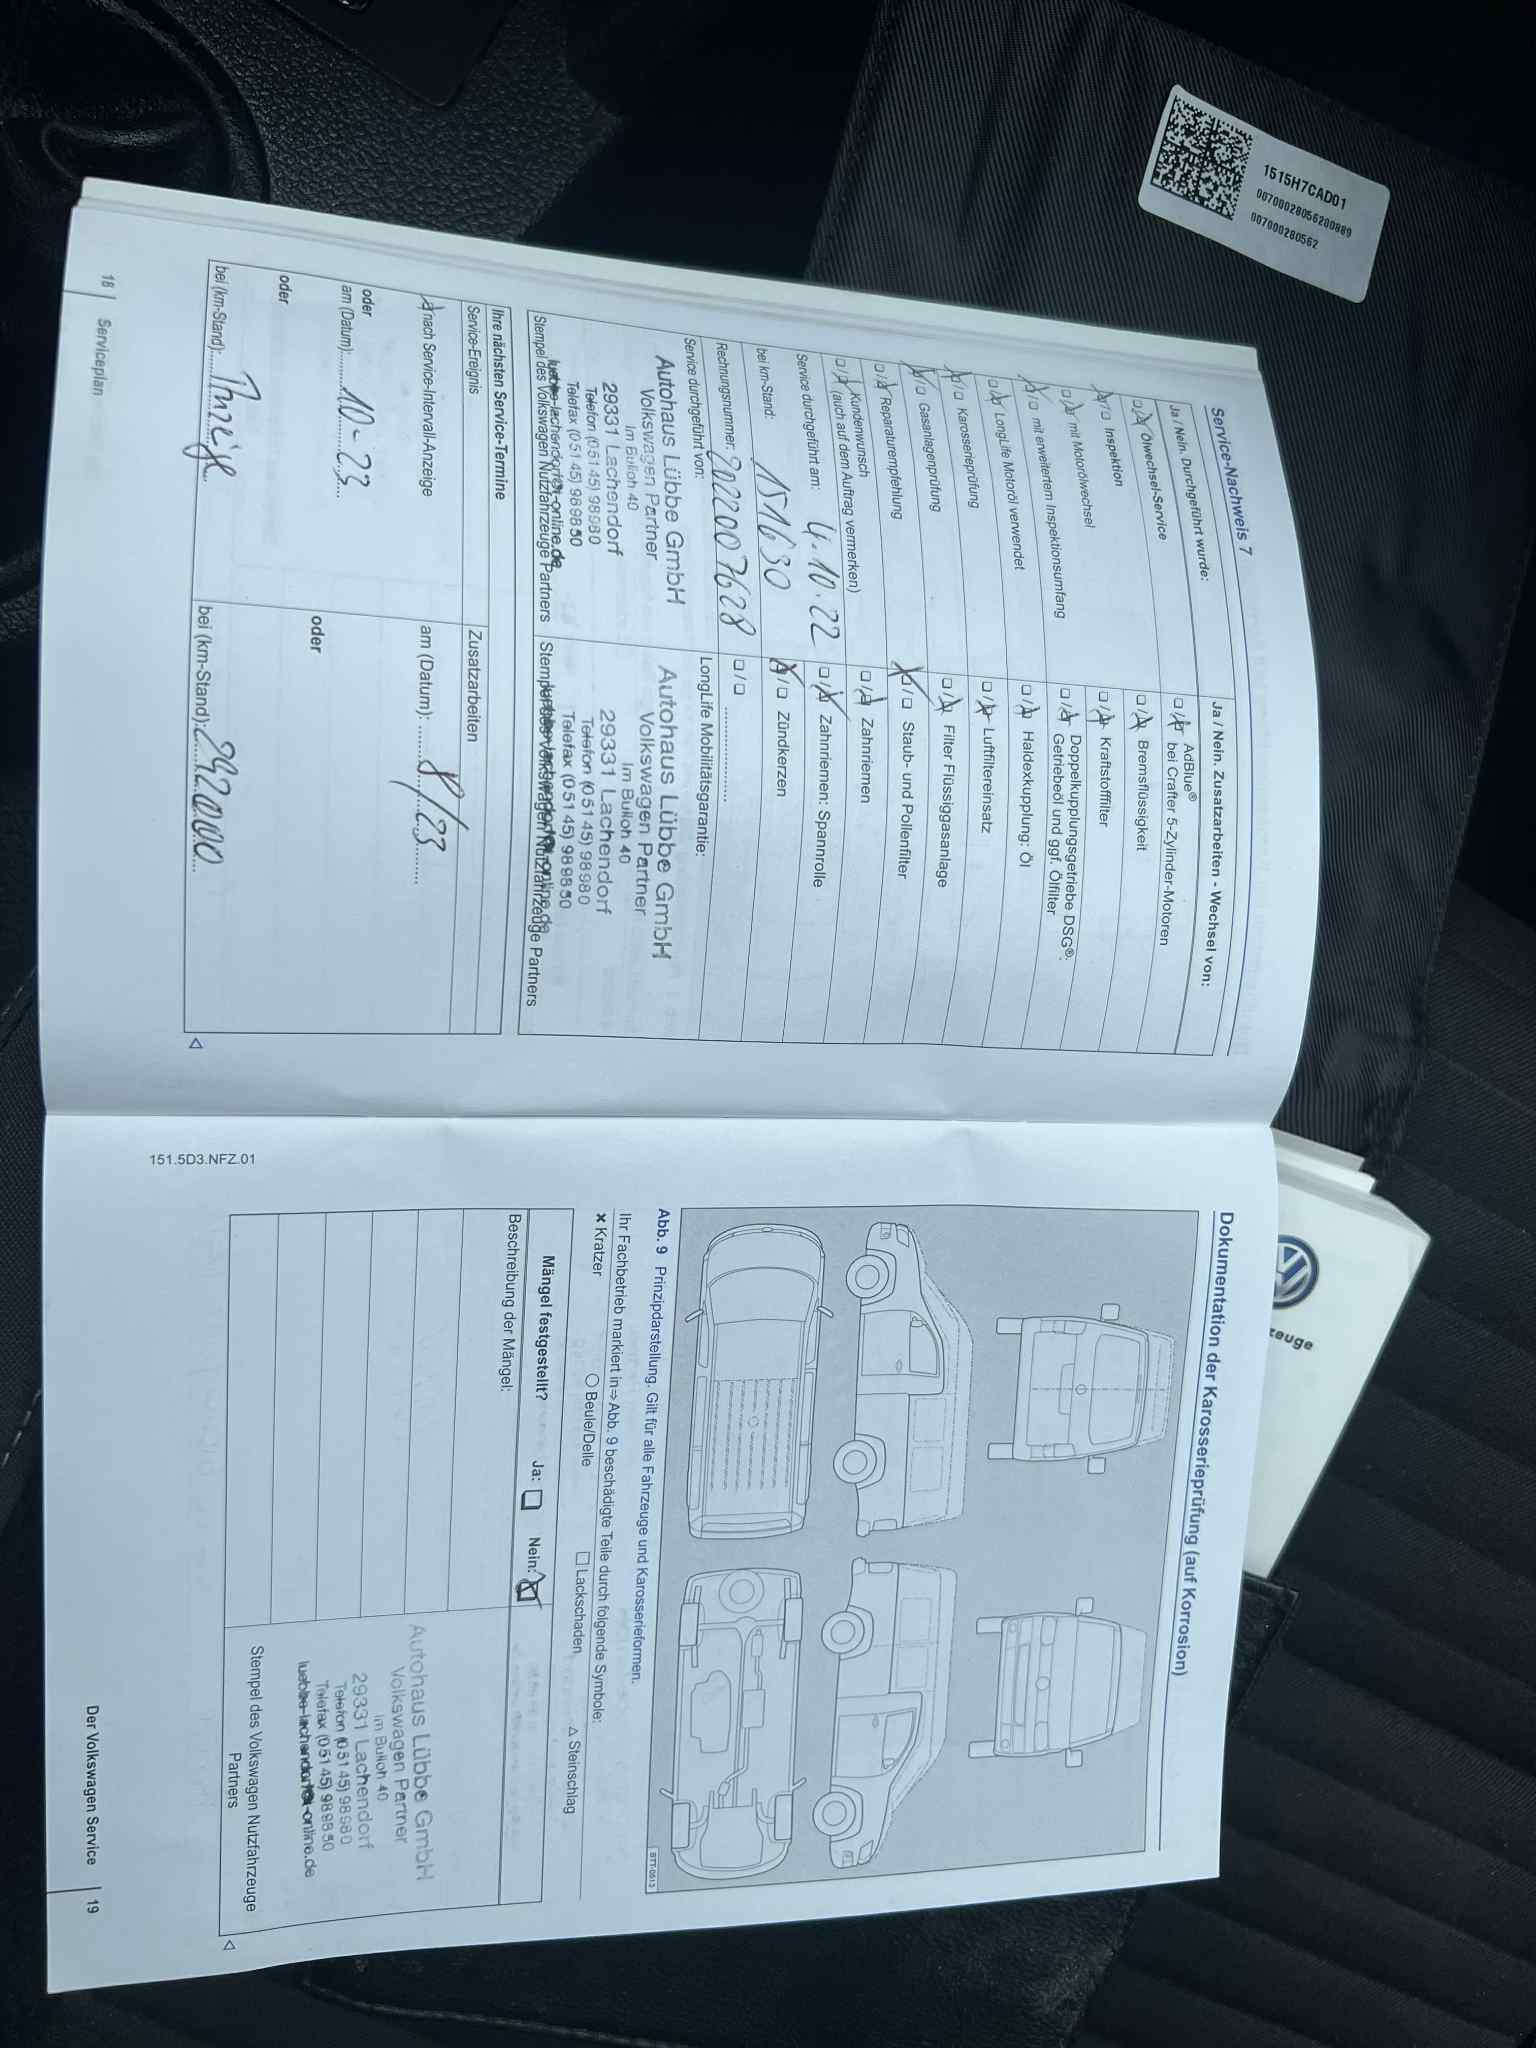 1515H7CAD01
00700028056200889
007000280562
Service-Nachweis 7
Ja / Nein. Durchgeführt wurde:
☐/☒ Ölwechsel-Service
☒/☐ Inspektion
☐/☒ mit Motorölwechsel
☒/☐ mit erweitertem Inspektionsumfang
☐/☒ LongLife Motoröl verwendet
☒/☐ Karosserieprüfung
☒/☐ Gasanlagenprüfung
☐/☒ Reparaturempfehlung
☐/☒ Kundenwunsch
(auch auf dem Auftrag vermerken)
Service durchgeführt am: 4.10.22
bei km-Stand: 151630
Rechnungsnummer: 2022007628
Service durchgeführt von:
Autohaus Lübbe GmbH
Volkswagen Partner
Im Bulloh 40
29331 Lachendorf
Telefon (05145) 98980
Telefax (05145) 989850
Stempel des Volkswagen Nutzfahrzeuge Partners
Ja / Nein. Zusatzarbeiten - Wechsel von:
☐/☒ AdBlue®
bei Crafter 5-Zylinder-Motoren
☐/☒ Bremsflüssigkeit
☐/☒ Kraftstofffilter
☐/☒ Doppelkupplungsgetriebe DSG®:
Getriebeöl und ggf. Ölfilter
☐/☒ Haldexkupplung: Öl
☐/☒ Luftfiltereinsatz
☐/☒ Filter Flüssiggasanlage
☒/☐ Staub- und Pollenfilter
☐/☒ Zahnriemen
☐/☒ Zahnriemen: Spannrolle
☒/☐ Zündkerzen
☐/☐ ....................
LongLife Mobilitätsgarantie:
Autohaus Lübbe GmbH
Volkswagen Partner
Im Bulloh 40
29331 Lachendorf
Telefon (05145) 98980
Telefax (05145) 989850
Stempel des Volkswagen Nutzfahrzeuge Partners
Ihre nächsten Service-Termine
Service-Ereignis
☒ nach Service-Intervall-Anzeige
oder
am (Datum): 10-23
oder
bei (km-Stand):
Zusatzarbeiten
am (Datum): 8/23
oder
bei (km-Stand):
18 | Serviceplan
Dokumentation der Karosserieprüfung (auf Korrosion)
BTT-0513
Abb. 9 Prinzipdarstellung. Gilt für alle Fahrzeuge und Karosserieformen.
Ihr Fachbetrieb markiert in⇒Abb. 9 beschädigte Teile durch folgende Symbole:
✘ Kratzer ○ Beule/Delle ☐ Lackschaden △ Steinschlag
Mängel festgestellt? Ja: ☐ Nein: ☒
Beschreibung der Mängel:
Autohaus Lübbe GmbH
Volkswagen Partner
Im Bulloh 40
29331 Lachendorf
Telefon (05145) 98980
Telefax (05145) 989850
Stempel des Volkswagen Nutzfahrzeuge
Partners
151.5D3.NFZ.01
Der Volkswagen Service | 19